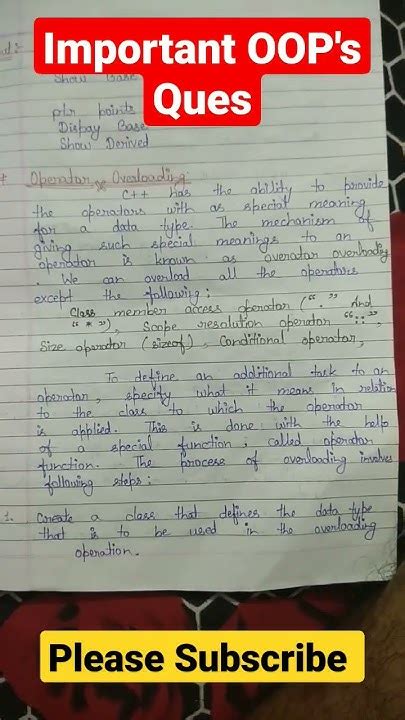 Important OOP's
Ques
Show Base
ptr points
Dispay Base
Show Derived
Operator Overloading
C++ has the ability to provide
the operators with as special meaning
for a data type. The mechanism of
giving such special meanings to an
operator is known as overatar overloading
. We can overload all the operators
except the following:
Class member access operator (“ . ” And
“ * ”), Scope resolution operator “ :: ”,
Size operator (sizeof), Conditional operator,
To define an additional task to an
operator, specify what it means in relation
to the class to which the operator
is applied. This is done with the help
of a special function, called operator
function. The process of overloading involves
following steps:
1. Create a class that defines the data type
that is to be used in the overloading
operation.
Please Subscribe